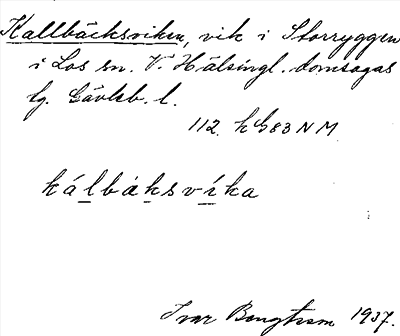 Kallbäcksviken, vik i Storryggen
i Los sn. V. Hälsingl. domsagas
tg. Gävleb. l.
112. k G 83 N M
kálbáksvíka
Ivar Bengtsson 1937.